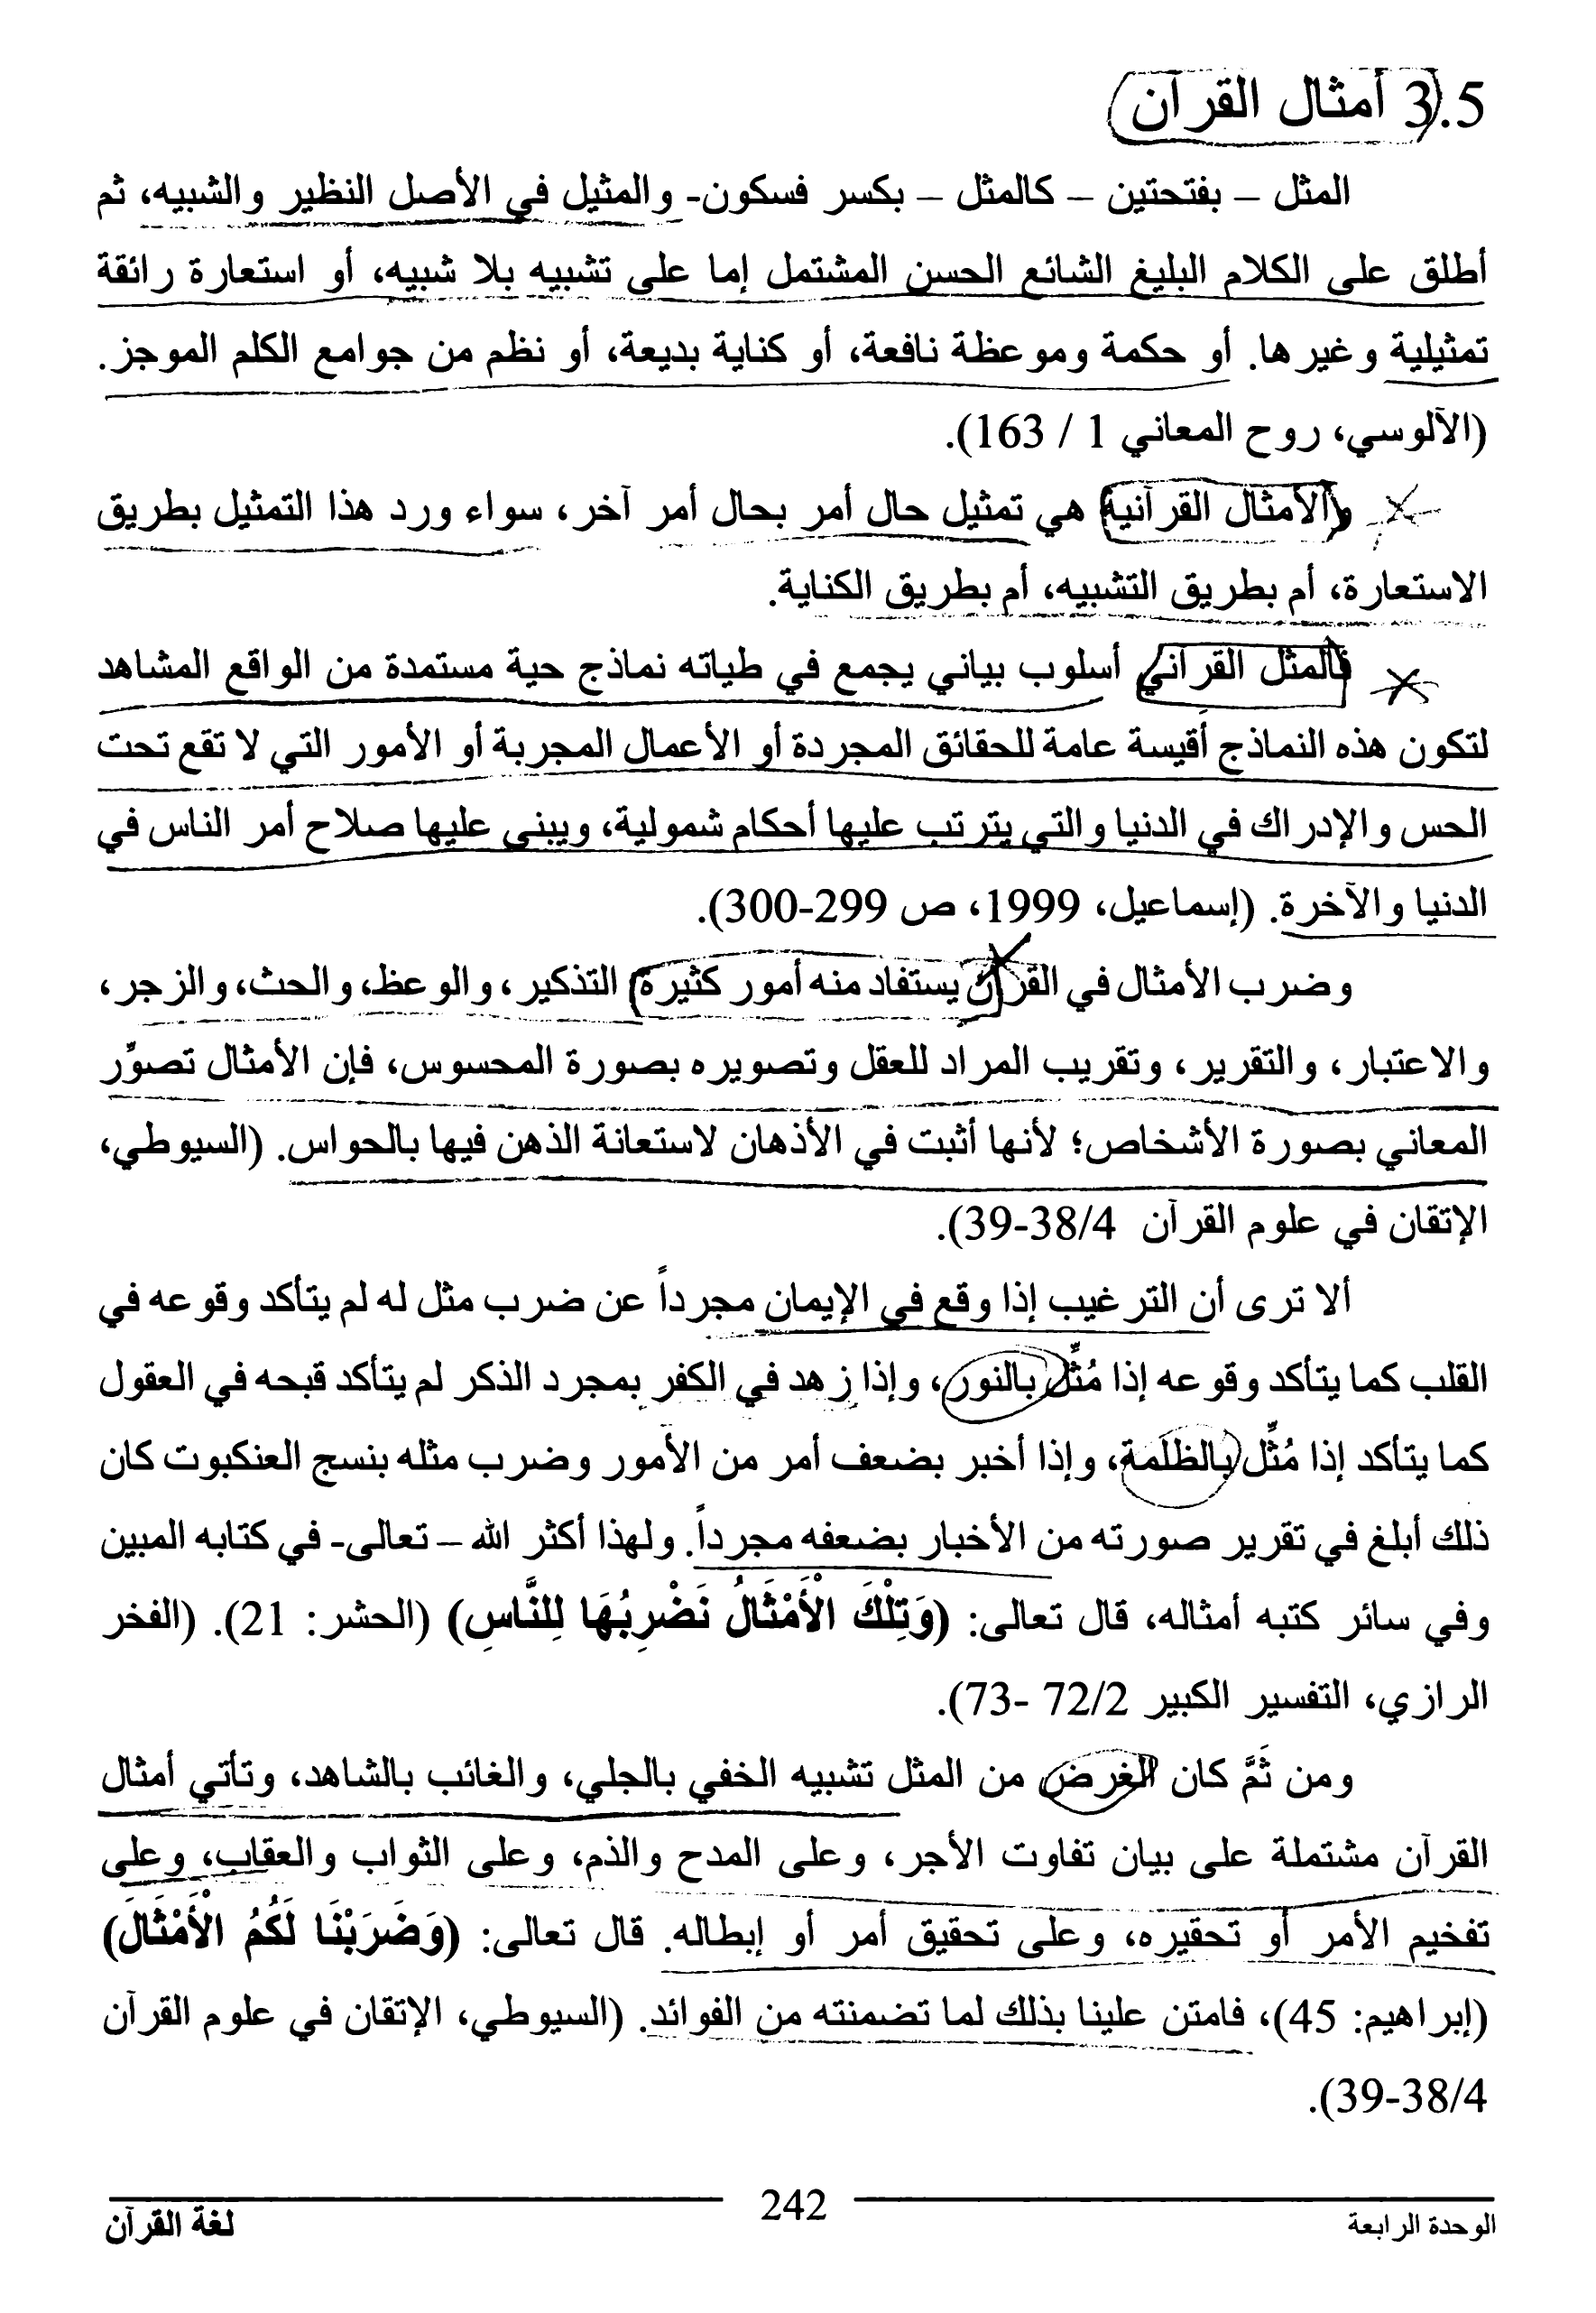 3.5 أمثال القرآن
المثل – بفتحتين – كالمثل – بكسر فسكون- والمثيل في الأصل النظير والشبيه، ثم
أطلق على الكلام البليغ الشائع الحسن المشتمل إما على تشبيه بلا شبيه، أو استعارة رائقة
تمثيلية وغيرها. أو حكمة وموعظة نافعة، أو كناية بديعة، أو نظم من جوامع الكلم الموجز.
(الآلوسي، روح المعاني 1 / 163).
والأمثال القرآنية هي تمثيل حال أمر بحال أمر آخر، سواء ورد هذا التمثيل بطريق
الاستعارة، أم بطريق التشبيه، أم بطريق الكناية.
فالمثل القرآني أسلوب بياني يجمع في طياته نماذج حية مستمدة من الواقع المشاهد
لتكون هذه النماذج أقيسة عامة للحقائق المجردة أو الأعمال المجربة أو الأمور التي لا تقع تحت
الحس والإدراك في الدنيا والتي يترتب عليها أحكام شمولية، ويبنى عليها صلاح أمر الناس في
الدنيا والآخرة. (إسماعيل، 1999، ص 299-300).
وضرب الأمثال في القرآن يستفاد منه أمور كثيرة التذكير، والوعظ، والحث، والزجر،
والاعتبار، والتقرير، وتقريب المراد للعقل وتصويره بصورة المحسوس، فإن الأمثال تصوّر
المعاني بصورة الأشخاص؛ لأنها أثبت في الأذهان لاستعانة الذهن فيها بالحواس. (السيوطي،
الإتقان في علوم القرآن 38/4-39).
ألا ترى أن الترغيب إذا وقع في الإيمان مجرداً عن ضرب مثل له لم يتأكد وقوعه في
القلب كما يتأكد وقوعه إذا مُثِّل بالنور، وإذا زهد في الكفر بمجرد الذكر لم يتأكد قبحه في العقول
كما يتأكد إذا مُثِّل بالظلمة، وإذا أخبر بضعف أمر من الأمور وضرب مثله بنسج العنكبوت كان
ذلك أبلغ في تقرير صورته من الأخبار بضعفه مجرداً. ولهذا أكثر الله – تعالى- في كتابه المبين
وفي سائر كتبه أمثاله، قال تعالى: (وَتِلْكَ الْأَمْثَالُ نَضْرِبُهَا لِلنَّاسِ) (الحشر: 21). (الفخر
الرازي، التفسير الكبير 72/2 -73).
ومن ثَمَّ كان الغرض من المثل تشبيه الخفي بالجلي، والغائب بالشاهد، وتأتي أمثال
القرآن مشتملة على بيان تفاوت الأجر، وعلى المدح والذم، وعلى الثواب والعقاب، وعلى
تفخيم الأمر أو تحقيره، وعلى تحقيق أمر أو إبطاله. قال تعالى: (وَضَرَبْنَا لَكُمُ الْأَمْثَالَ)
(إبراهيم: 45)، فامتن علينا بذلك لما تضمنته من الفوائد. (السيوطي، الإتقان في علوم القرآن
38/4-39).
الوحدة الرابعة 242 لغة القرآن